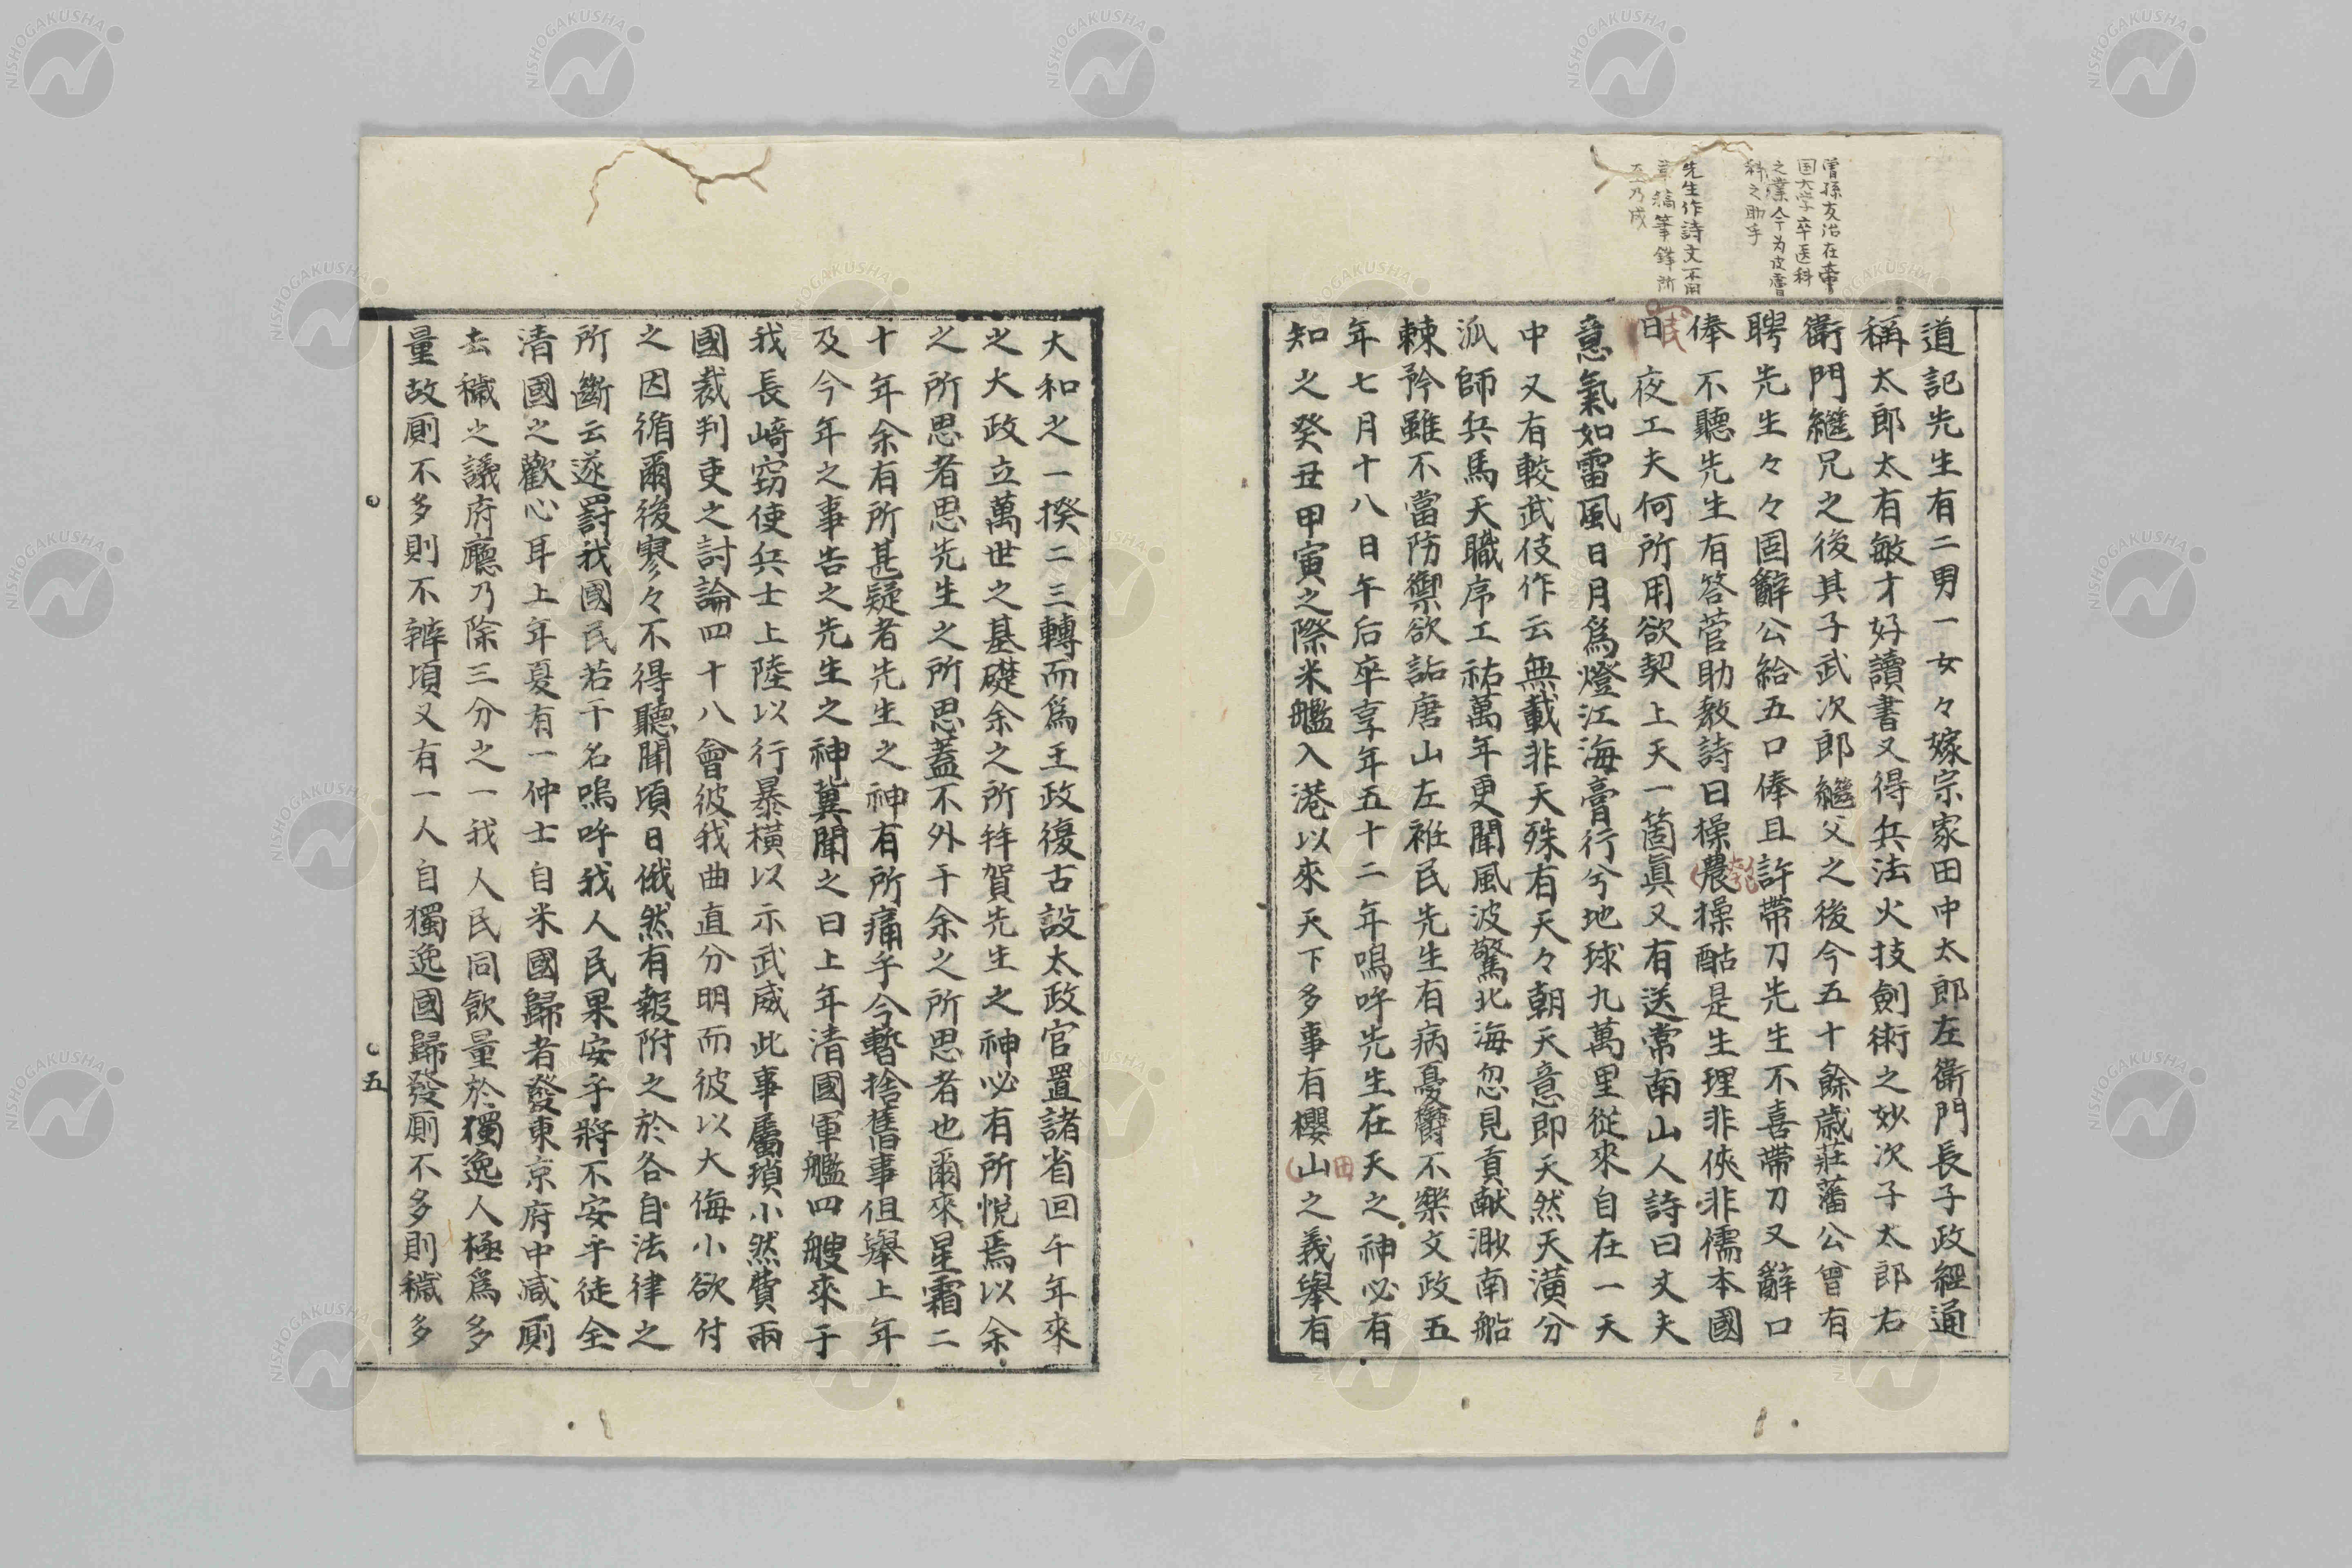 曽孫友治在帝
国大学卒医科
之業今为皮膚
科之助手
先生作詩文不用
草稿筆鋒所
至乃成
道記先生有二男一女々嫁宗家田中太郎左衛門長子政經通
稱太郎太有敏才好讀書又得兵法火技劍術之妙次子太郎右
衛門繼兄之後其子武次郎繼父之後今五十餘歳莊藩公曾有
聘先生々々固辭公給五口俸且許帶刀先生不喜帶刀又辭口
俸不聽先生有答菅助教詩曰操農操酤是生理非俠非儒本國
民
乾
日夜工夫何所用欲契上天一箇眞又有送常南山人詩曰丈夫
意氣如雷風日月爲燈江海膏行兮地球九萬里從來自在一天
中又有較武伎作云無載非天殊有天々朝天意即天然天潢分
派師兵馬天職序工祐萬年更聞風波驚北海忽見貢献渺南船
棘矜雖不當防禦欲詬唐山左袵民先生有病憂欝不樂文政五
年七月十八日午后卒享年五十二年嗚呼先生在天之神必有
知之癸丑甲寅之際米艦入港以來天下多事有櫻山之義舉有
田
大和之一揆二三轉而爲王政復古設太政官置諸省回千年來
之大政立萬世之基礎余之所拜賀先生之神必有所悅焉以余
之所思者思先生之所思蓋不外于余之所思者也爾來星霜二
十年余有所甚疑者先生之神有所痛乎今暫捨舊事但舉上年
及今年之事告之先生之神冀聞之曰上年清國軍艦四艘來于
我長﨑窃使兵士上陸以行暴橫以示武威此事屬瑣小然費兩
國裁判吏之討論四十八會彼我曲直分明而彼以大侮小欲付
之因循爾後寥々不得聽聞頃日俄然有報附之於各自法律之
所斷云遂罸我國民若干名嗚呼我人民果安乎將不安乎徒全
清國之歡心耳上年夏有一仲士自米國歸者發東京府中减厠
去穢之議府廳乃除三分之一我人民同飲量於獨逸人極爲多
量故厠不多則不辨頃又有一人自獨逸國歸發厠不多則穢多
五